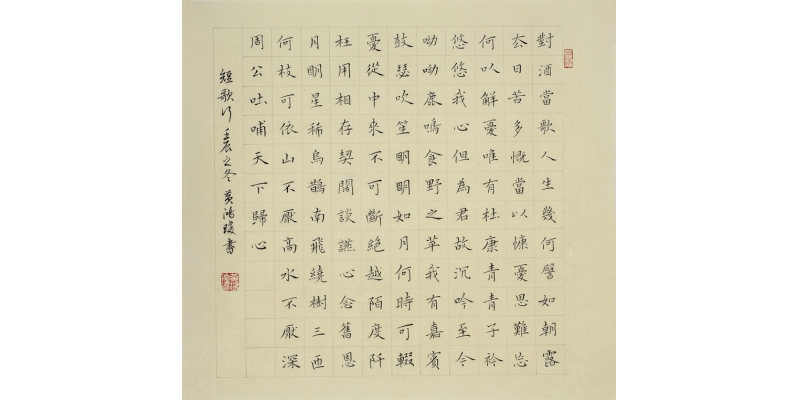 對酒當歌人生幾何譬如朝露
厺日苦多慨當以慷憂思難忘
何以解憂唯有杜康青青子衿
悠悠我心但為君故沉吟至今
呦呦鹿鳴食野之苹我有嘉賓
鼓瑟吹笙明明如月何時可輟
憂從中來不可斷絕越陌度阡
枉用相存契闊談讌心念舊恩
月明星稀烏鵲南飛繞樹三匝
何枝可依山不厭高水不厭深
周公吐哺天下歸心
短歌行 壬辰之冬 黃鴻書